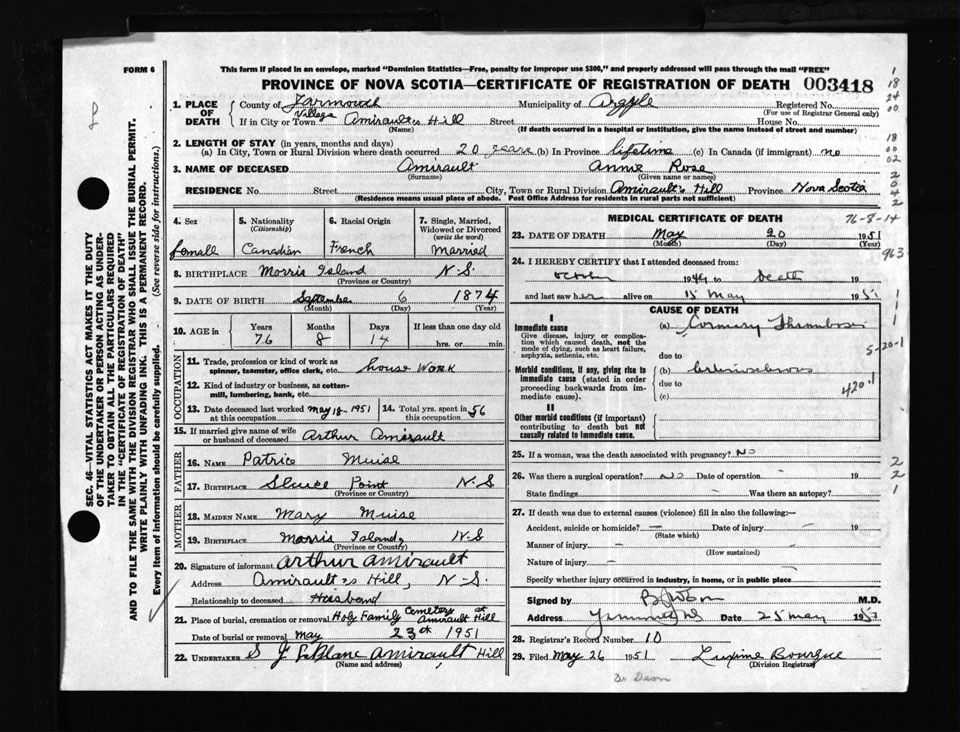 FORM 6
This form if placed in an envelope, marked "Dominion Statistics—Free, penalty for improper use $300," and properly addressed will pass through the mail "FREE"
PROVINCE OF NOVA SCOTIA—CERTIFICATE OF REGISTRATION OF DEATH 003418
SEC. 46—VITAL STATISTICS ACT MAKES IT THE DUTY
OF THE UNDERTAKER OR PERSON ACTING AS UNDER-
TAKER TO OBTAIN ALL THE PARTICULARS REQUIRED
IN THE "CERTIFICATE OF REGISTRATION OF DEATH"
AND TO FILE THE SAME WITH THE DIVISION REGISTRAR WHO SHALL ISSUE THE BURIAL PERMIT.
WRITE PLAINLY WITH UNFADING INK. THIS IS A PERMANENT RECORD.
Every item of information should be carefully supplied. (See reverse side for instructions.)
1. PLACE OF DEATH
County of Yarmouth Municipality of Argyle Registered No.
(For use of Registrar General only)
Village
If in City or Town Amirault's Hill Street House No.
(Name) (If death occurred in a hospital or institution, give the name instead of street and number)
2. LENGTH OF STAY (in years, months and days)
(a) In City, Town or Rural Division where death occurred 20 years (b) In Province lifetime (c) In Canada (if immigrant) no
3. NAME OF DECEASED Amirault Annie Rose
(Surname) (Given name or names)
RESIDENCE No. Street City, Town or Rural Division Amirault's Hill Province Nova Scotia
(Residence means usual place of abode. Post Office Address for residents in rural parts not sufficient)
4. Sex
5. Nationality (Citizenship)
6. Racial Origin
7. Single, Married, Widowed or Divorced (write the word)
Femall Canadian French Married
8. BIRTHPLACE Morris Island N.S.
(Province or Country)
9. DATE OF BIRTH September 6 1874
(Month) (Day) (Year)
10. AGE in Years Months Days If less than one day old
76 8 14 hrs. or min.
OCCUPATION
11. Trade, profession or kind of work as spinner, teamster, office clerk, etc. House Work
12. Kind of industry or business, as cotton-mill, lumbering, bank, etc.
13. Date deceased last worked at this occupation May 18-1951 14. Total yrs. spent in this occupation 56
15. If married give name of wife or husband of deceased Arthur Amirault
FATHER
16. NAME Patrice Muise
17. BIRTHPLACE Sluice Point N.S
(Province or Country)
MOTHER
18. MAIDEN NAME Mary Muise
19. BIRTHPLACE Morris Island, N.S
(Province or Country)
20. Signature of informant Arthur Amirault
Address Amirault's Hill, N-S.
Relationship to deceased Husband
21. Place of burial, cremation or removal Holy Family Cemetery at Amirault Hill
Date of burial or removal May 23th 1951
22. UNDERTAKER S J LeBlanc Amirault Hill
(Name and address)
MEDICAL CERTIFICATE OF DEATH
76-8-14
23. DATE OF DEATH May 20 1951
(Month) (Day) (Year)
963
24. I HEREBY CERTIFY that I attended deceased from:
October 1949 to Death 19
and last saw her alive on 15 May 1951
CAUSE OF DEATH
I
Immediate cause
Give disease, injury or complication which caused death, not the mode of dying, such as heart failure, asphyxia, asthenia, etc.
(a) Coronary Thrombosis
5-20-1
due to
Morbid conditions, if any, giving rise to immediate cause (stated in order proceeding backwards from immediate cause).
(b)
due to
420.1
(c)
II
Other morbid conditions (if important) contributing to death but not causally related to immediate cause.
25. If a woman, was the death associated with pregnancy? No
26. Was there a surgical operation? No Date of operation 19
State findings Was there an autopsy?
27. If death was due to external causes (violence) fill in also the following:—
Accident, suicide or homicide? Date of injury 19
(State which)
Manner of injury
(How sustained)
Nature of injury
Specify whether injury occurred in industry, in home, or in public place
Signed by M.D.
Address Date 25 May 1951
28. Registrar's Record Number 10
29. Filed May 26 1951
(Division Registrar)